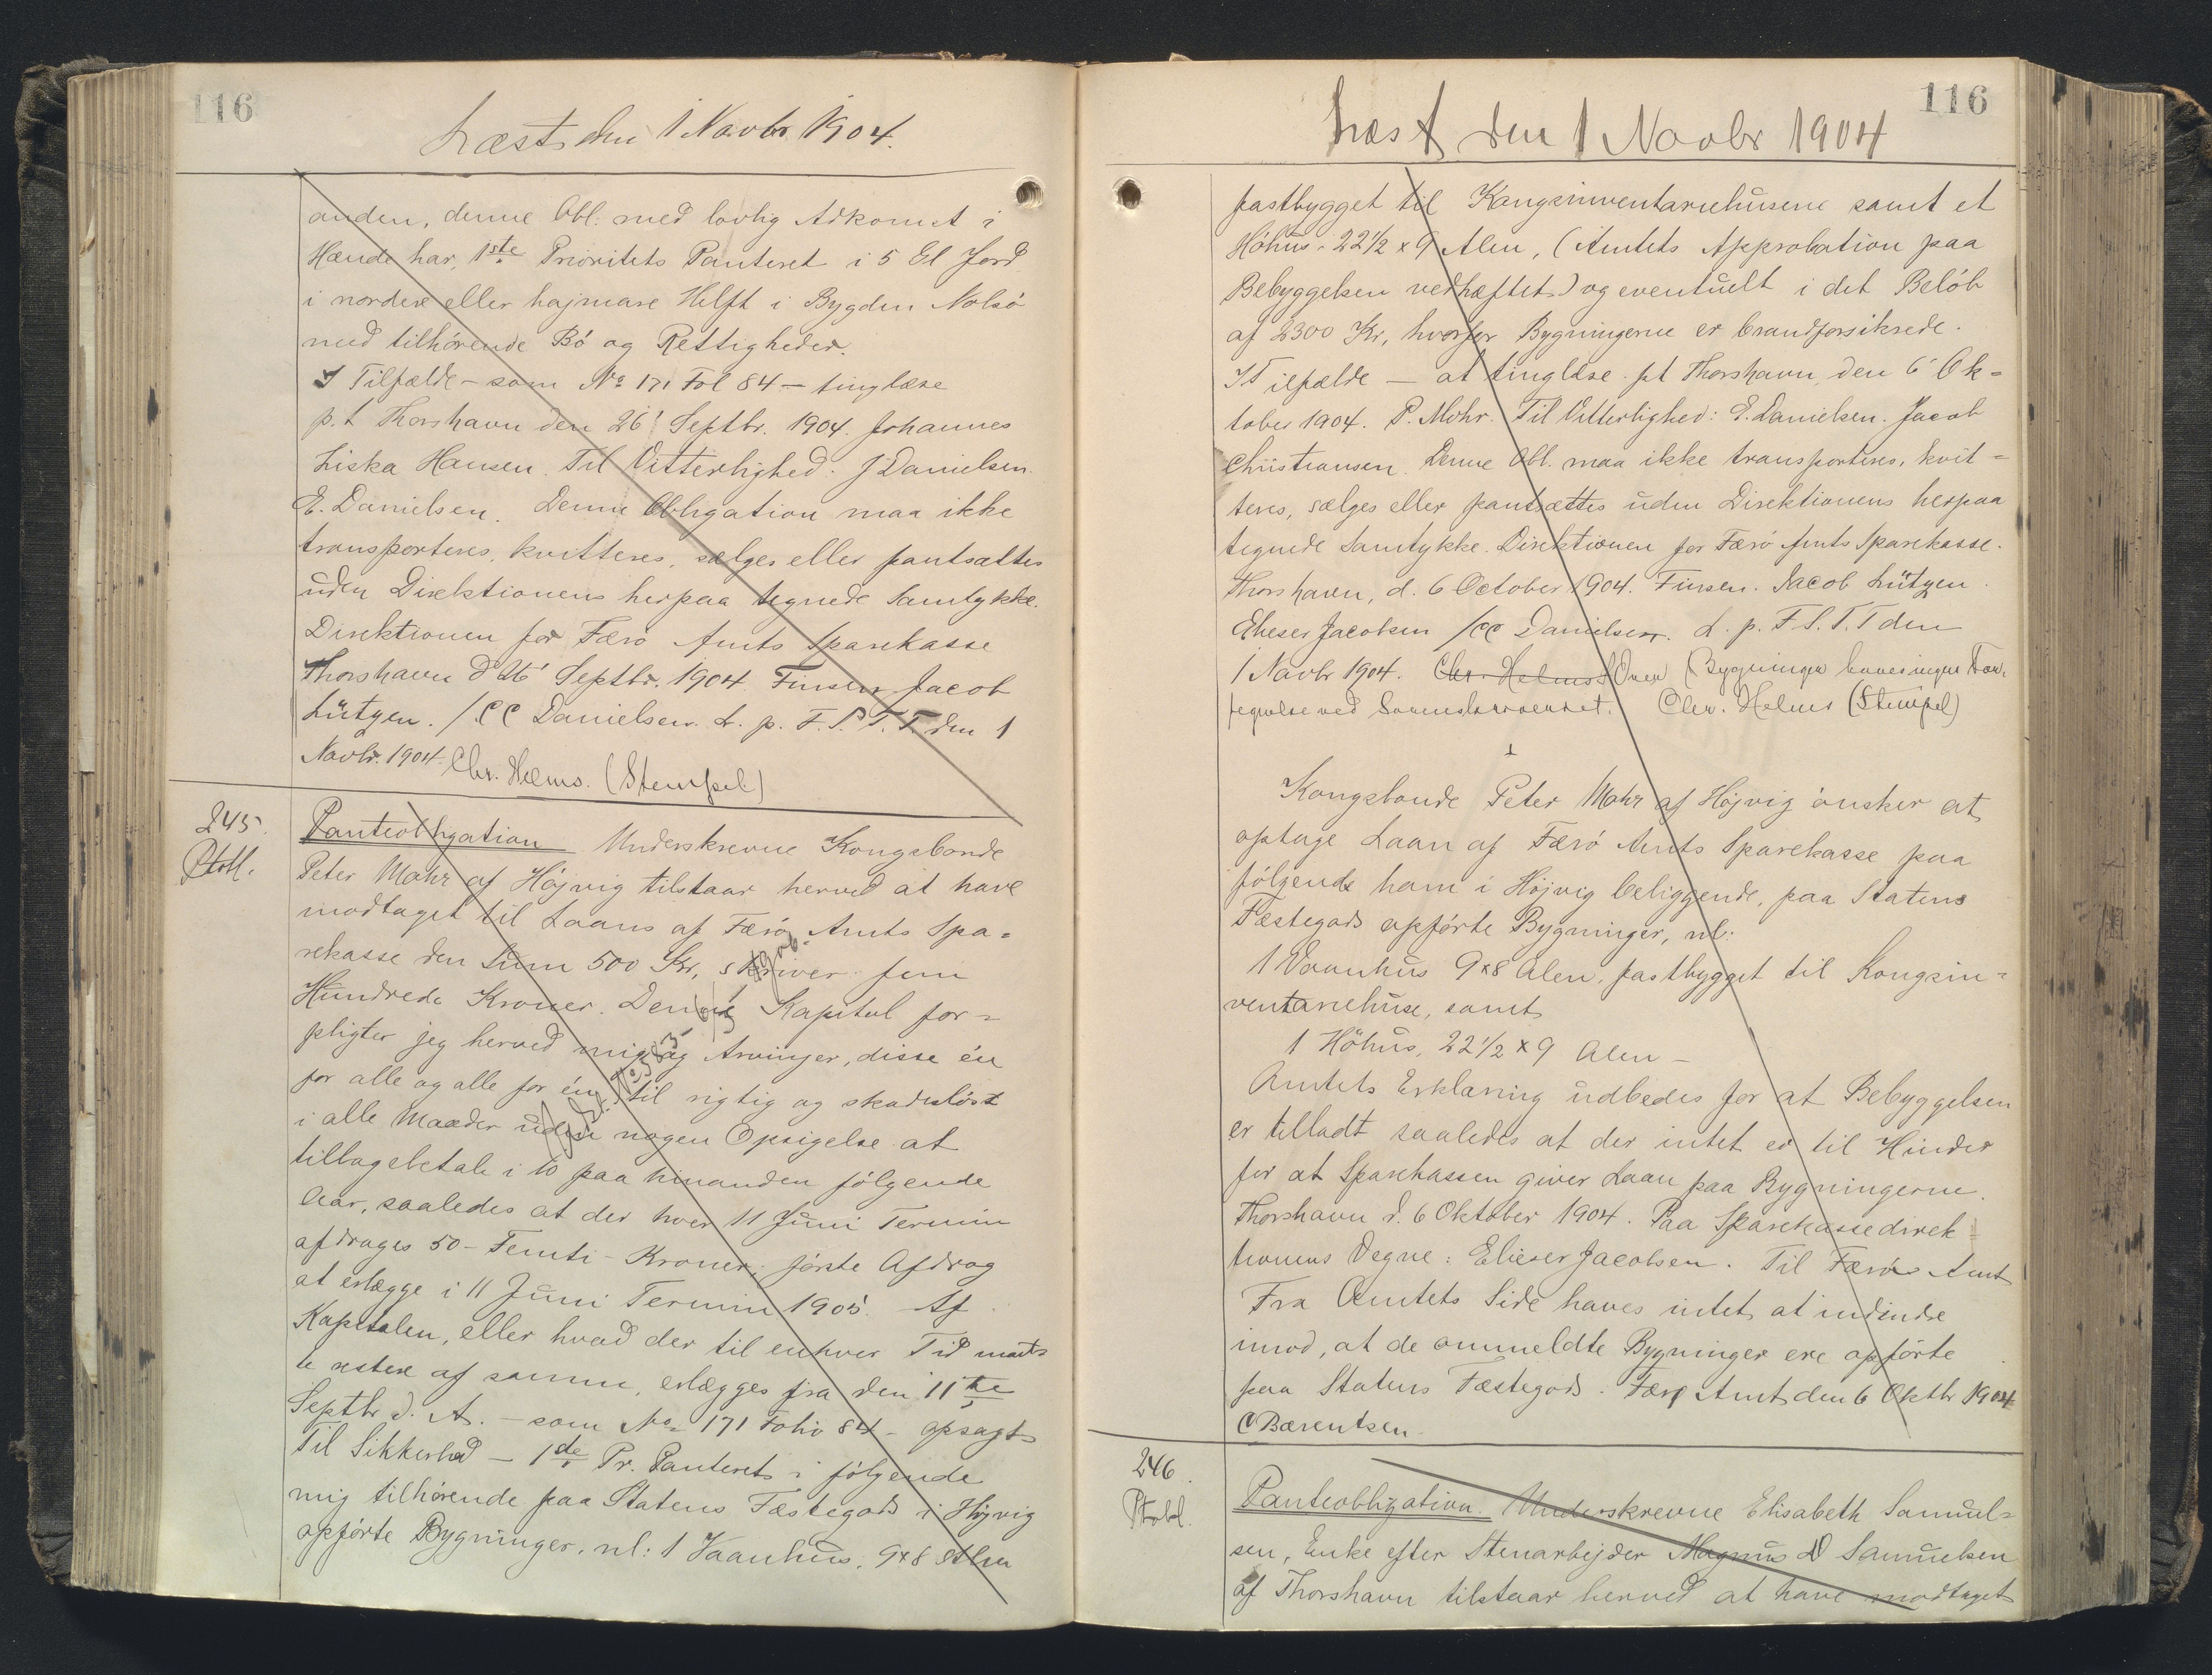 116
Læst den 1 Novbr. 1904.
anden, denne Obl. med lovlig Adkomst i
Hænde har, 1ste Prioritets Panteret i 5 Gl Jord
i nordre eller hajmare Helft i Bygden Nolsø
med tilhørende Bø og Rettigheder.
I Tilfælde - som No 171 Fol 84 - tinglæse
p.t Thorshavn den 26' Septbr. 1904. Johannes
Liska Hansen. Til Vitterlighed: J Danielsen.
E. Danielsen. Denne Obligation maa ikke
transporteres, kvitteres, sælges eller pantsættes
uden Direktionens herpaa tegnede Samtykke.
Direktionen for Færø Amts Sparekasse
Thorshavn d 26' Septbr. 1904. Finsen Jacob
Lützen. /CC Danielsen. L. p. F. S. T. T. den 1
Novbr. 1904. Chr. Helms. (Stempel)
245.
Ptobl.
Panteobligation Underskrevne Kongsbonde
Peter Mohr af Højvig tilstaar herved at have
modtaget til Laans af Færø Amts Spa=
rekasse den Sum 500 Kr, skriver fem
Hundrede Kroner. Denne Kapital for=
pligter jeg herved mig og Arvinger, disse én
for alle og alle for én, til rigtig og skadesløst
i alle Maader uden nogen Opsigelse at
tilbagebetale i 10 paa hinanden følgende
Aar, saaledes at der hver 11 Juni Termin
afdrages 50 - Femti - Kroner, første Afdrag
at erlægge i 11 Juni Termin 1905. Af
Kapitalen, eller hvad der til enhver Tid maat=
te restere af samme, erlægges fra den 11te
Septbr d. A. - som No 171 Folio 84 - opsagt
Til Sikkerhed - 1ste Pr. Panteret i følgende
mig tilhørende paa Statens Fæstegods i Højvig
opførte Bygninger, nl: 1 Vaanhus, 9x8 Alen
116
Læst den 1 Novbr 1904
fastbygget til Kongsinventariehusene samt et
Høhus 22½ x 9 Alen, (Amtets Approbation paa
Bebyggelsen vedhæftet) og eventuelt i det Beløb
af 2300 Kr, hvorfor Bygningerne er brandforsikrede.
I Tilfælde - at tinglæse. pt Thorshavn, den 6' Ok=
tober 1904. P. Mohr. Til Vitterlighed: E. Danielsen. Jacob
Christiansen. Denne Obl. maa ikke transporteres, kvit=
teres, sælges eller pantsættes uden Direktionens herpaa
tegnede Samtykke. Direktionen for Færø Amts Sparekasse.
Thorshavn, d. 6 October 1904. Finsen. Jacob Lützen.
Elieser Jacobsen /CC Danielsen. L. p. F. S. T. T den
1 Novbr 1904. Chr. Helms Over Bygninger haves ingen For=
tegnelse ved Sorenskriveriet. Chr. Helms (Stempel)
Kongsbonde Peter Mohr af Højvig ønsker at
optage Laan af Færø Amts Sparekasse paa
følgende ham i Højvig beliggende, paa Statens
Fæstegods opførte Bygninger, nl:
1 Vaanhus 9x8 Alen, fastbygget til Kongsin=
ventariehuse, samt
1 Høhus, 22½ x 9 Alen -
Amtets Erklæring udbedes for at Bebyggelsen
er tilladt saaledes at der intet er til Hinder
for at Sparekassen giver Laan paa Bygningerne.
Thorshavn d. 6 Oktober 1904. Paa Sparekassedirek=
tionens Vegne: Elieser Jacobsen. Til Færø Amt
Fra Amtets Side haves intet at indvende
imod, at de ommeldte Bygninger ere opførte
paa Statens Fæstegods. Færø Amt den 6 Oktbr 1904
C Bærentsen.
246.
Ptobl.
Panteobligation. Underskrevne Elisabeth Samuel=
sen, Enke efter Stenarbejder Magnus D Samuelsen
af Thorshavn tilstaar herved at have modtaget